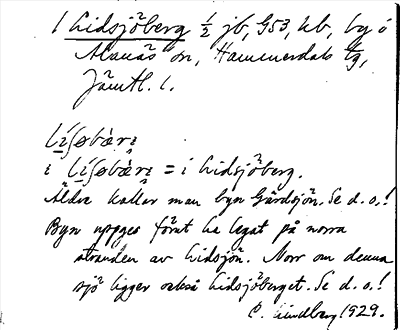 1 Lidsjöberg ½ jb, G53, kb, by i
Alanäs sn, Hammerdals tg,
Jämtl. l.
Líʃøbær̀ı
i Líʃøbær̀ı = i Lidsjöberg.
Äldre kallar man byn Gärdsjön. Se d. o.!
Byn uppges förut ha legat på norra
stranden av Lidsjön. Norr om denna
sjö ligger också Lidsjöberget. Se d. o.!
C. Lindberg 1929.